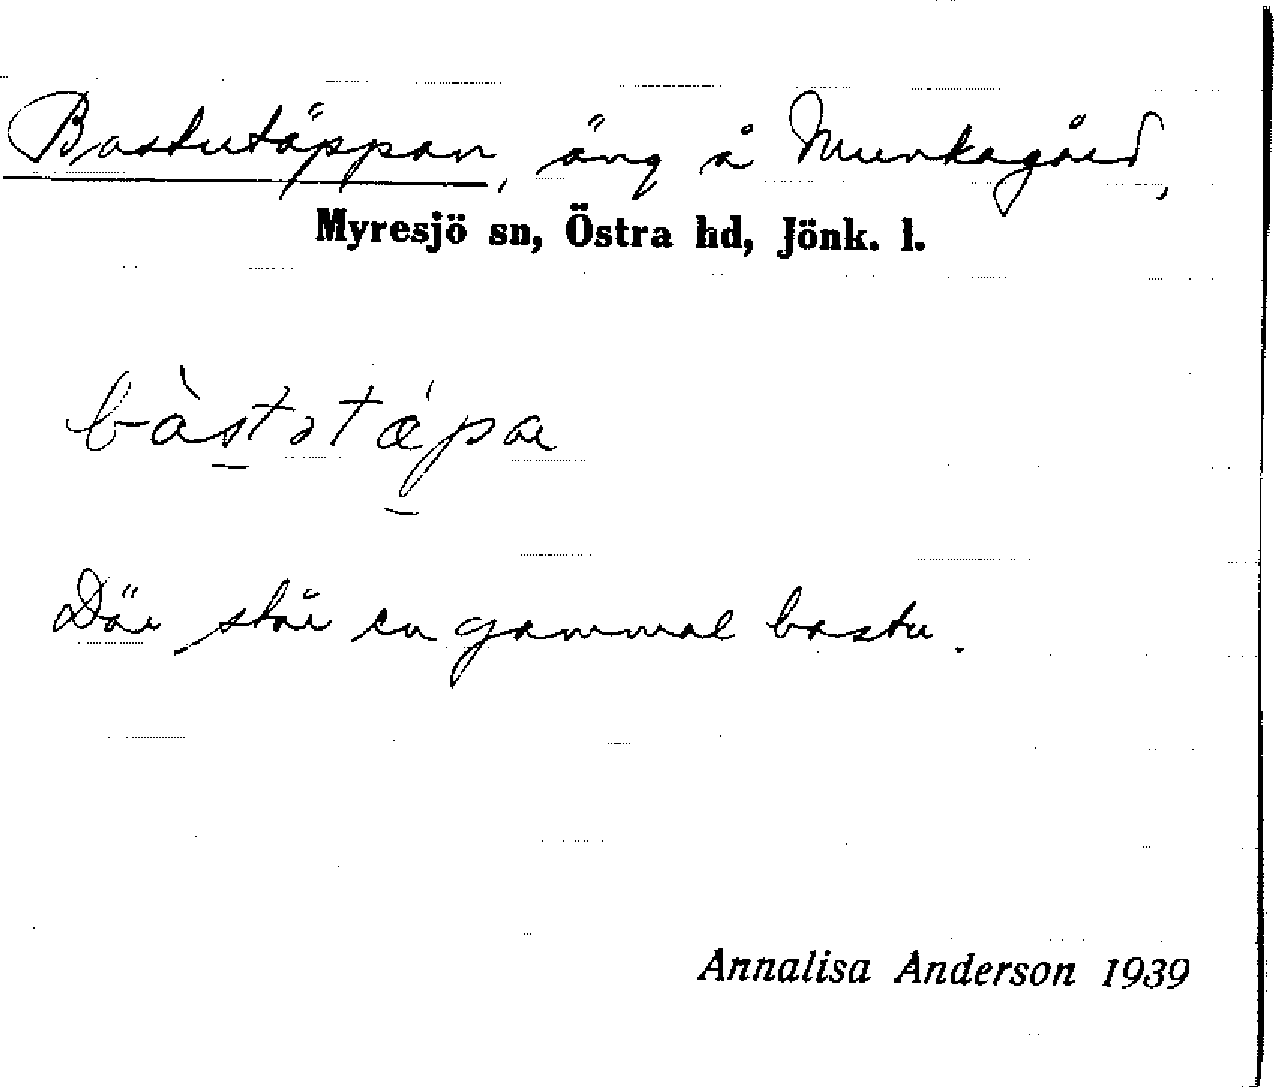 Bastutäppan, äng å Munkagård,
Myresjö sn, Östra hd, Jönk. l.
bàstətǽpa
Där står en gammal bastu.
Annalisa Anderson 1939